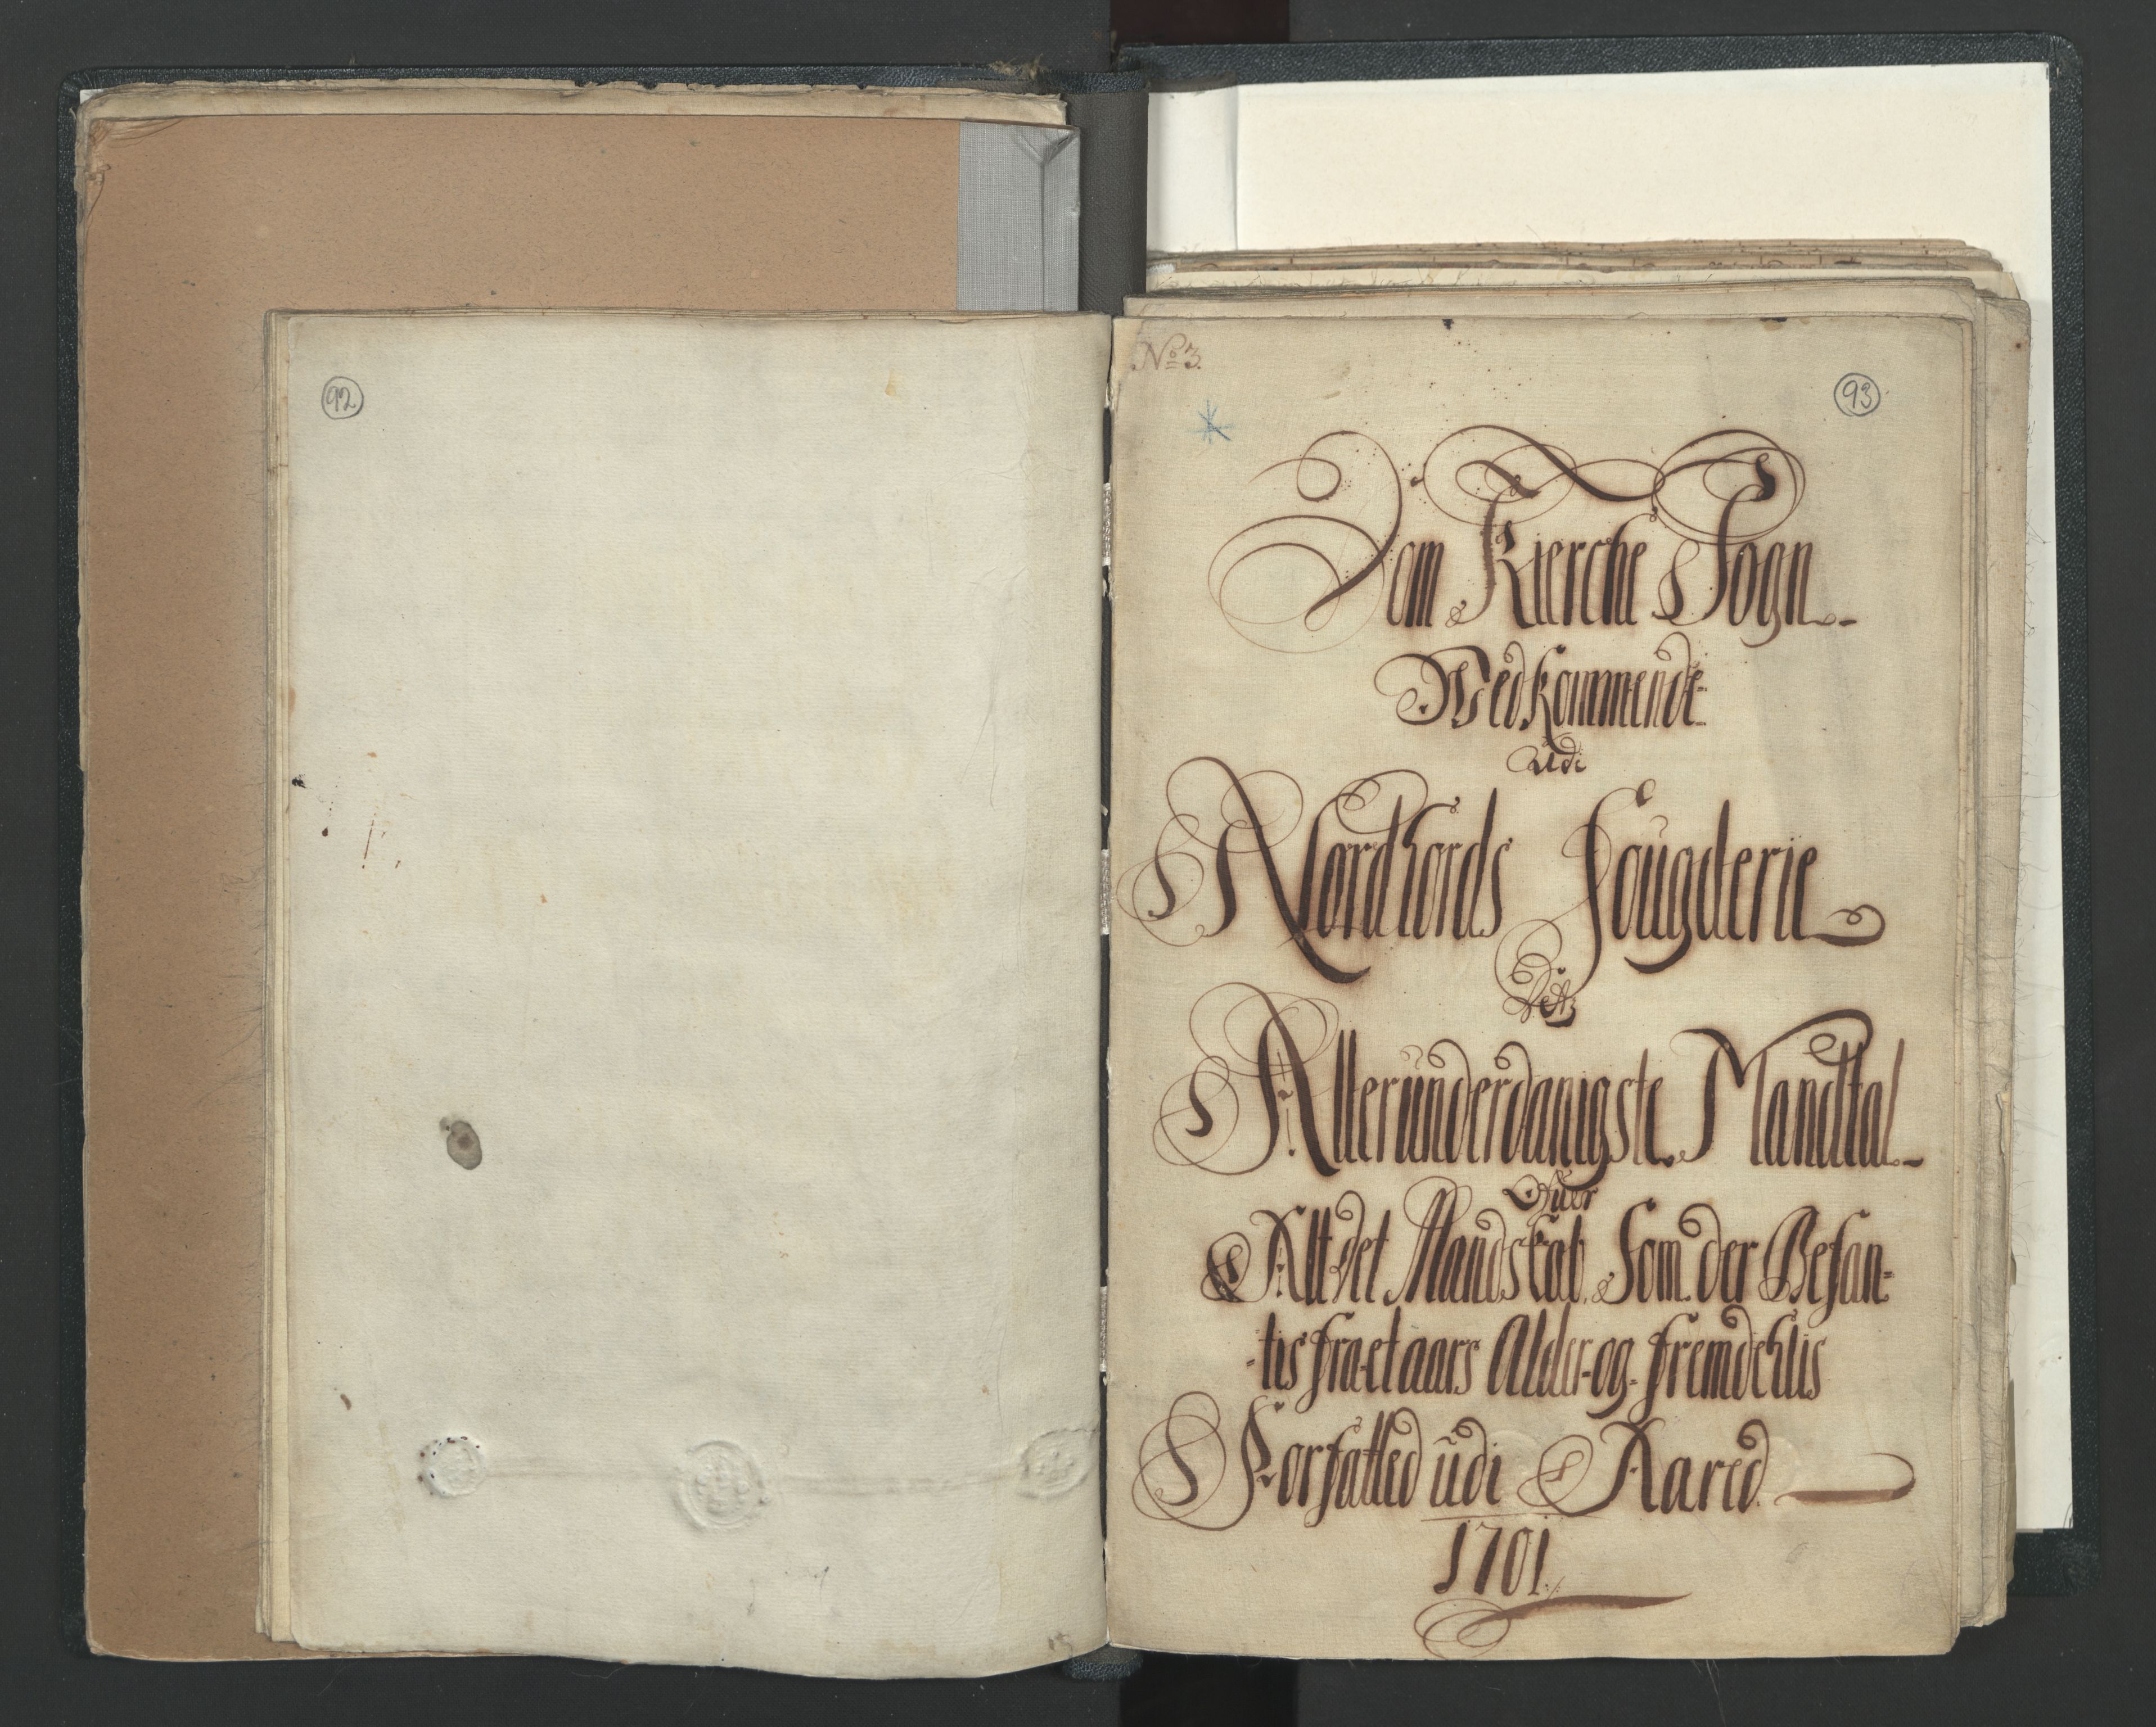 92
No 3.
93
Dom Kierche Sogn
Wedkommende
Udi
Nordhords Fougderie
Det
Alleründerdanigste Mandtal
Ofuer
Alt det Mandskab Som der Befan-
-tis fra et aars Alder og fremdehlis
Forfatted üdi Aared
1701.